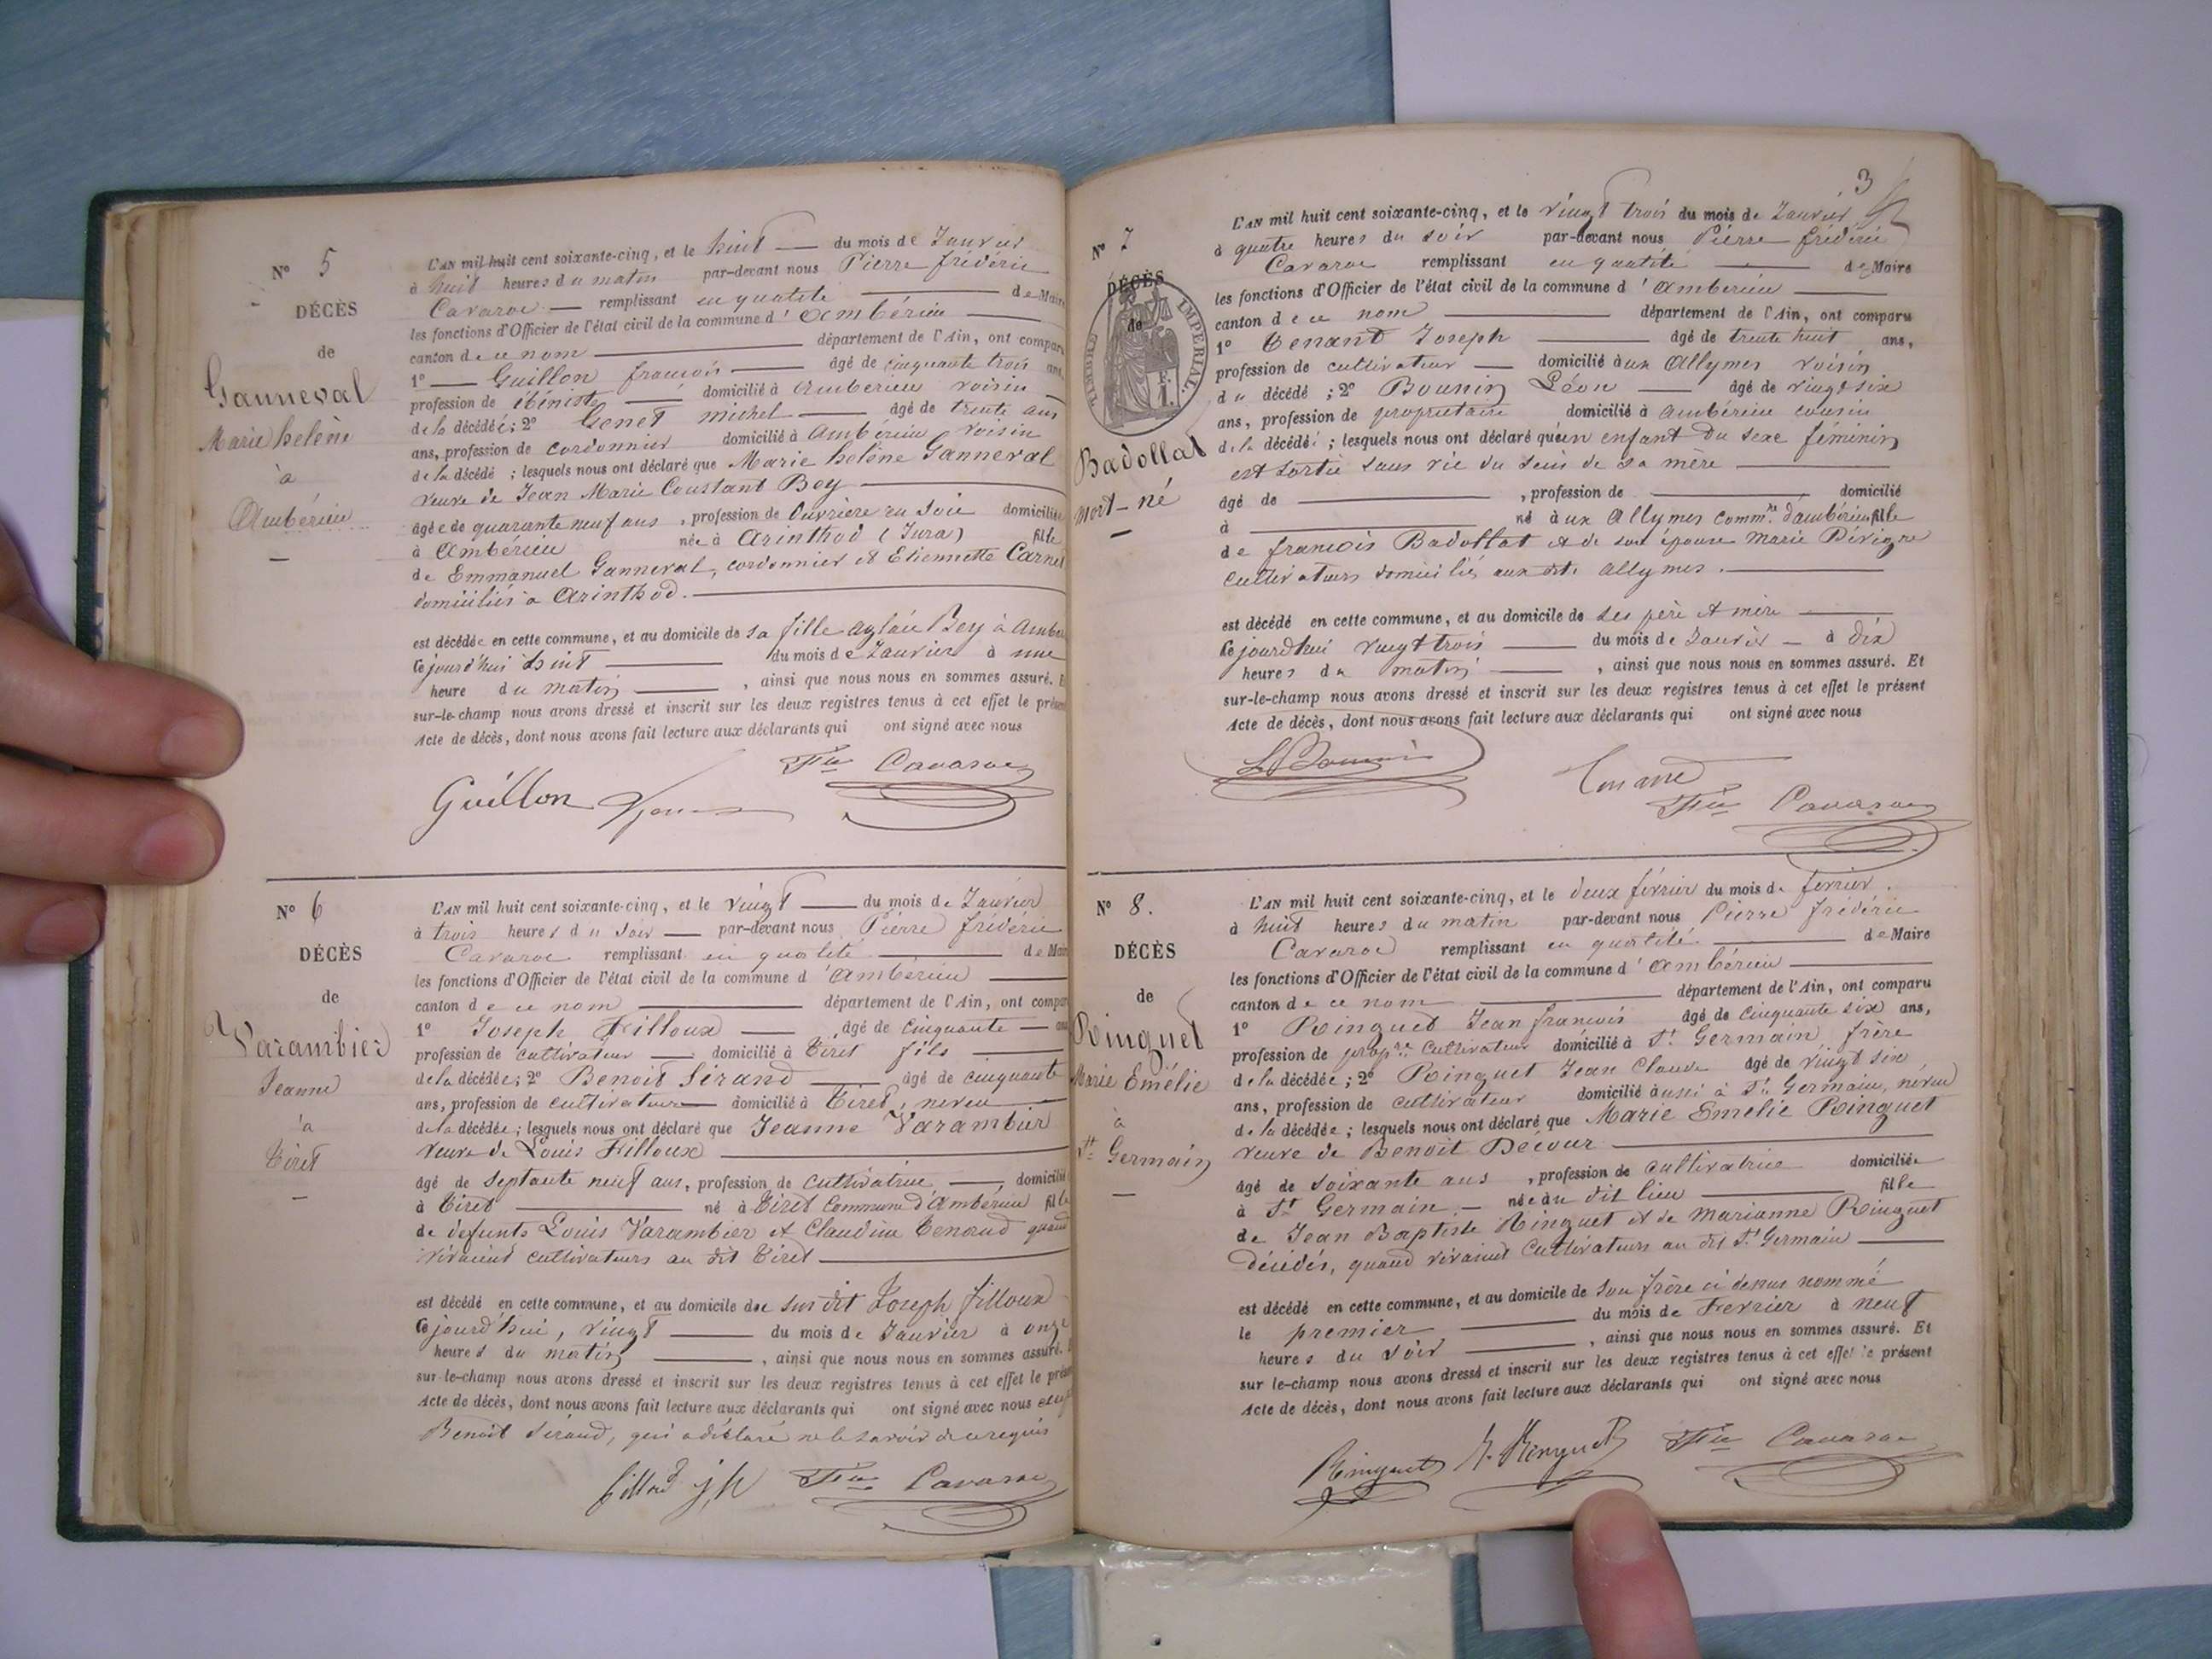 N° 5
DÉCÈS
de
Ganneval
Marie helène
à
Ambérieu
L'AN mil huit cent soixante-cinq, et le huit du mois de Janvier
à huit heures du matin par-devant nous Pierre frédéric
Cavaroc remplissant en qualité de Maire
les fonctions d'Officier de l'état civil de la commune d'Ambérieu
canton de ce nom département de l'Ain, ont comparu
1° Guillon françois âgé de cinquante trois ans,
profession de ébéniste domicilié à Ambérieu voisin
de la décédée; 2° Genet michel âgé de trente ans
ans, profession de cordonnier domicilié à Ambérieu voisin
de la décédé ; lesquels nous ont déclaré que Marie helène Ganneval
veuve de Jean Marie Constant Bey
âgée de quarante neuf ans , profession de Ouvrière en soie domiciliée
à Ambérieu née à Arinthod (Jura) fille
de Emmanuel Ganneval, cordonnier et Etiennette Carnet
domiciliés à Arinthod.
est décédée en cette commune, et au domicile de sa fille aglaïe Bey à Ambe
Cejourd'hui huit du mois de Janvier à une
heure du matin , ainsi que nous nous en sommes assuré. E
sur-le-champ nous avons dressé et inscrit sur les deux registres tenus à cet effet le présen
Acte de décès, dont nous avons fait lecture aux déclarants qui ont signé avec nous
Guillon Cavaroc
N° 6
DÉCÈS
de
Varambier
Jeanne
à
Tiret
L'AN mil huit cent soixante-cinq, et le vingt du mois de Janvier
à trois heures du soir par-devant nous Pierre frédéric
Cavaroc remplissant en qualité de Mair
les fonctions d'Officier de l'état civil de la commune d'Ambérieu
canton de ce nom département de l'Ain, ont compar
1° Joseph Filloux , âgé de cinquante ans
profession de cultivateur domicilié à Tiret fils
de la décédée; 2° Benoit Sirand âgé de cinquante
ans, profession de cultivateur domicilié à Tiret, neveu
de la décédée; lesquels nous ont déclaré que Jeanne Varambier
veuve de Louis Filloux
âgé de septante neuf ans, profession de cultivatrice , domicilié
à Tiret né à Tiret Commune d'Ambérieu fille
de defunts Louis Varambier et Claudine Tenand quand
vivaient cultivateurs au dit Tiret
est décédé en cette commune, et au domicile du sus dit Joseph filloux
Cejourd'hui, vingt du mois de Janvier à onze
heures du matin , ainsi que nous nous en sommes assuré.
sur-le-champ nous avons dressé et inscrit sur les deux registres tenus à cet effet le prése
Acte de décès, dont nous avons fait lecture aux déclarants qui ont signé avec nous
Benoit Sirand, qui a déclaré ne le savoir de ce requis
Cavaroc
3
N° 7
DÉCÈS
de
TIMBRE IMPÉRIAL
Badollat
mort-né
L'AN mil huit cent soixante-cinq, et le vingt trois du mois de Janvier
à quatre heures du soir par-devant nous Pierre frédéric
Cavaroc remplissant en qualité de Maire
les fonctions d'Officier de l'état civil de la commune d'Ambérieu
canton de ce nom département de l'Ain, ont comparu
1° Tenand Joseph âgé de trente huit ans,
profession de cultivateur domicilié aux Allymes voisin
du décédé ; 2° Bounin Léon âgé de vingt six
ans, profession de propriétaire domicilié à Ambérieu cousin
de la décédé ; lesquels nous ont déclaré qu'un enfant du sexe féminin
est sortie sans vie du sein de sa mère
âgé de , profession de domicilié
à né aux Allymes comm.ne d'ambérieu fille
de françois Badollat et de son épouse Marie Pévigne
cultivateurs domiciliés aux dits Allymes.
est décédé en cette commune, et au domicile de ses père et mère
Cejourd'hui vingt trois du mois de Janvier à dix
heures du matin , ainsi que nous nous en sommes assuré. Et
sur-le-champ nous avons dressé et inscrit sur les deux registres tenus à cet effet le présent
Acte de décès, dont nous avons fait lecture aux déclarants qui ont signé avec nous
Tenand
Cavaroc
N° 8.
DÉCÈS
de
Ringuet
Marie Emélie
à
St Germain
L'AN mil huit cent soixante-cinq, et le deux février du mois de fevrier.
à huit heures du matin par-devant nous Pierre frédéric
Cavaroc remplissant en qualité de Maire
les fonctions d'Officier de l'état civil de la commune d'Ambérieu
canton de ce nom département de l'Ain, ont comparu
1° Ringuet Jean francois âgé de cinquante six ans,
profession de prop.re cultivateur domicilié à St Germain frère
de la décédée ; 2° Ringuet Jean Claude âgé de vingt six
ans, profession de cultivateur domicilié aussi à St Germain, neveu
de la décédée ; lesquels nous ont déclaré que Marie Emélie Ringuet
veuve de Benoit Décour
âgé de soixante ans , profession de cultivatrice domiciliée
à St Germain née au dit lieu fille
de Jean Baptiste Ringuet et de Marianne Ringuet
décédés, quand vivaient Cultivateurs au dit St Germain
est décédé en cette commune, et au domicile de son frère ci dessus nommé
le premier du mois de Fevrier à neuf
heures du soir , ainsi que nous nous en sommes assuré. Et
sur le-champ nous avons dressé et inscrit sur les deux registres tenus à cet effet le présent
Acte de décès, dont nous avons fait lecture aux déclarants qui ont signé avec nous
Ringuet Ringuet Cavaroc